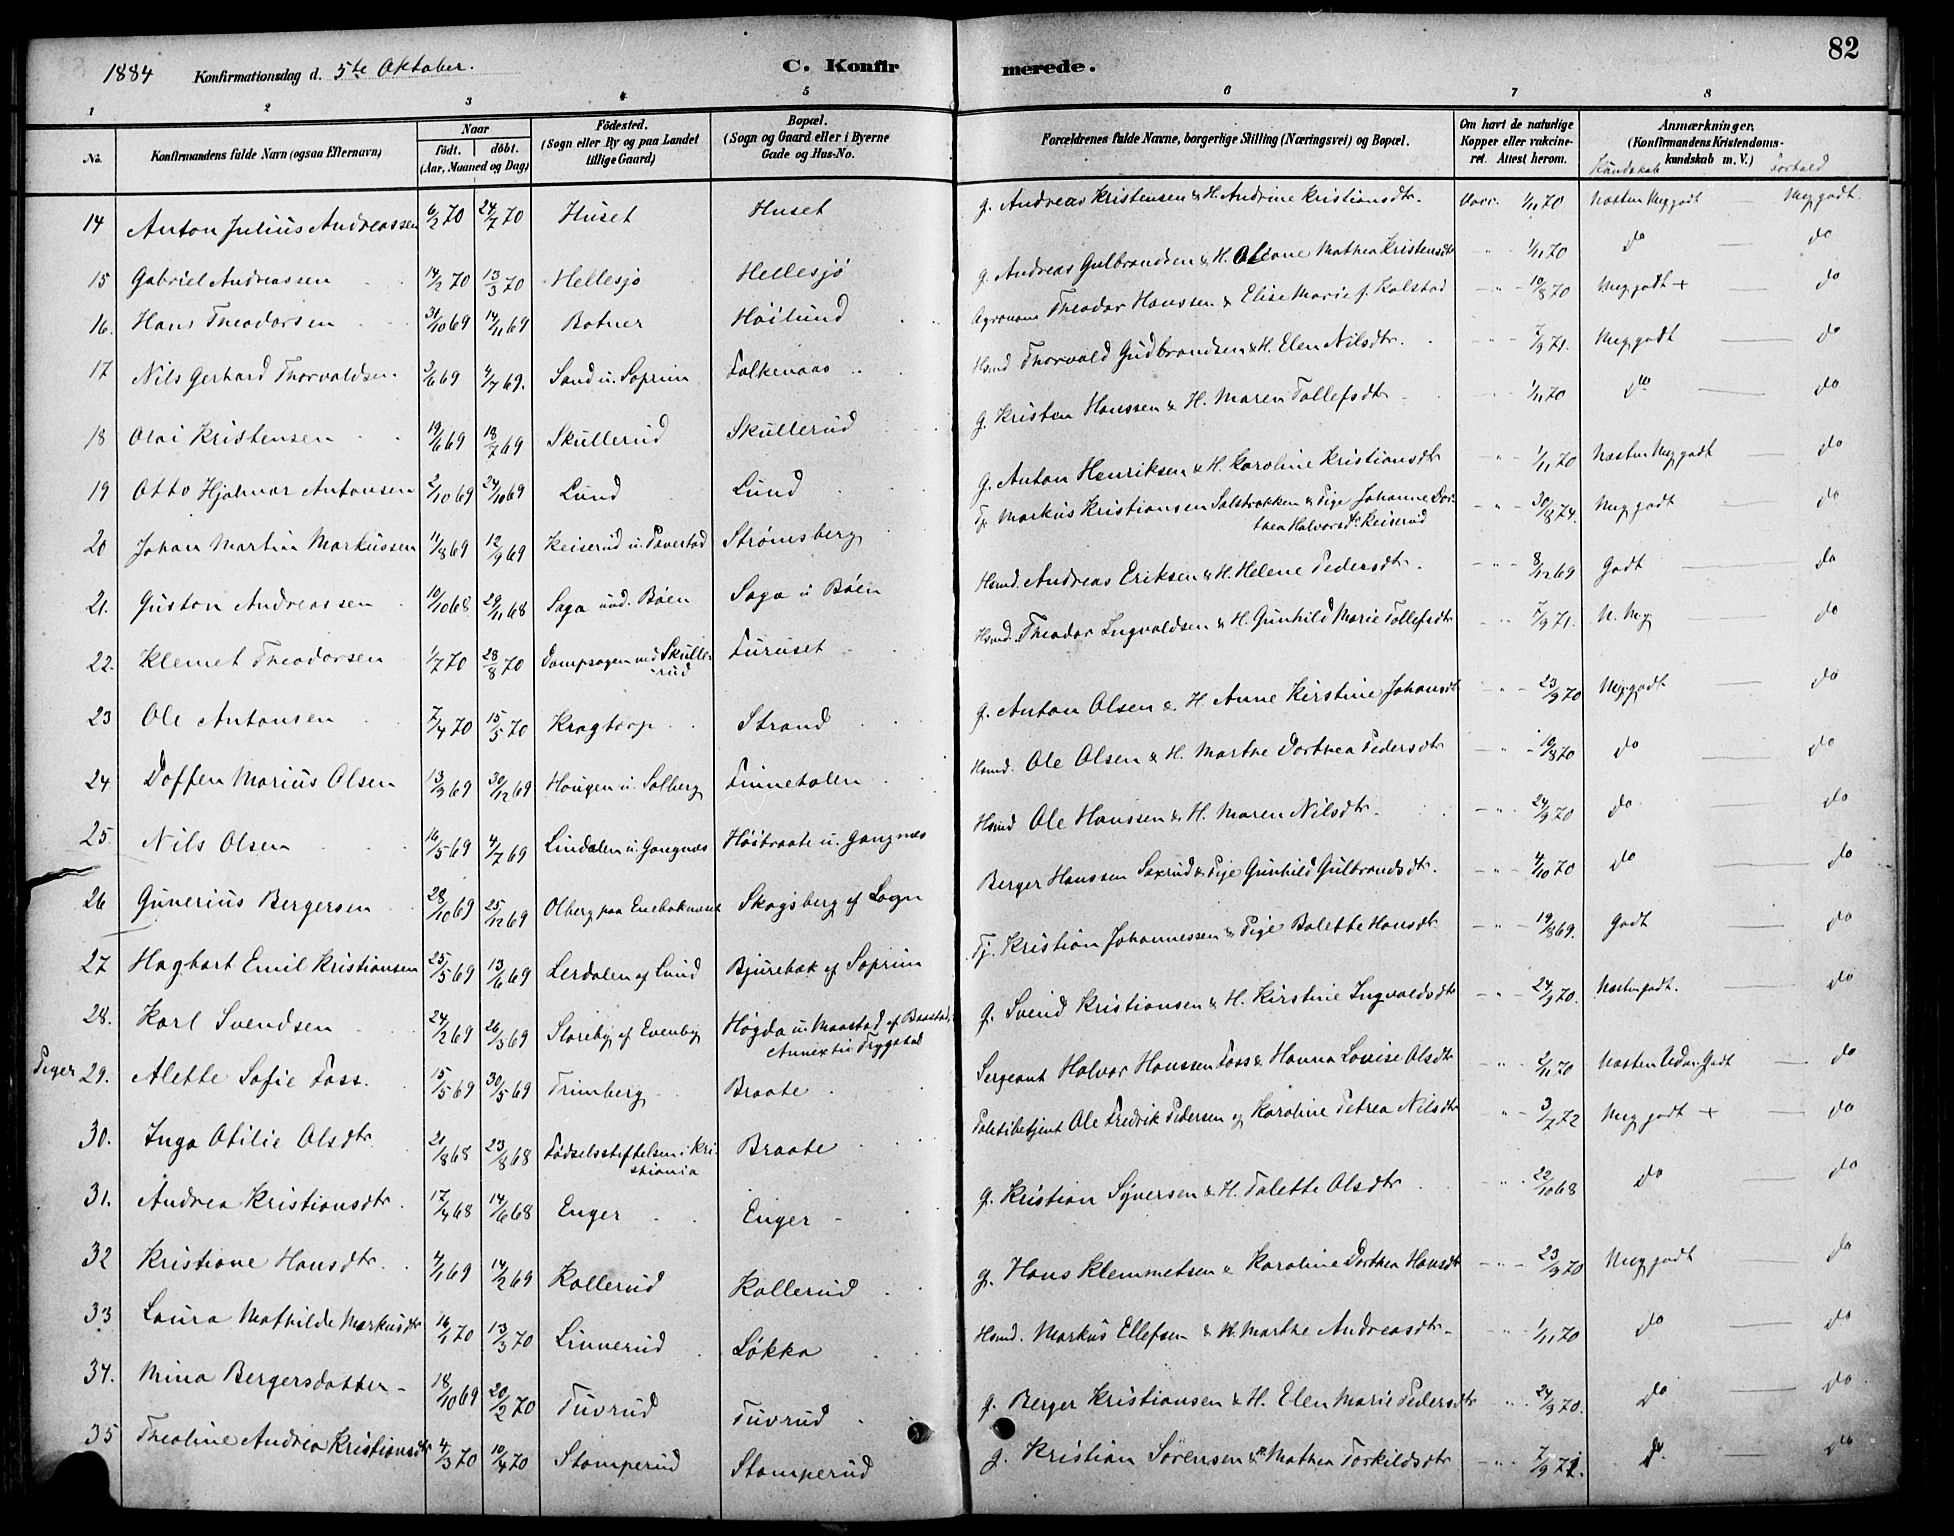 82
1884 Konfirmationsdag d. 5te Oktober. C. Konfirmerede.
1 2 3 4 5 6 7 8
No. Konfirmandens fulde Navn (ogsaa Efternavn) Naar födt. döbt. (Aar, Maaned og Dag) Födested. (Sogn eller By og paa Landet tillige Gaard) Bopæl. (Sogn og Gaard eller i Byerne Gade og Hus-No. Forældrenes fulde Navne, borgerlige Stilling (Næringsvei) og Bopæl. Om havt de naturlige Kopper eller vakcineret. Attest herom. Anmærkninger. (Konfirmandens Kristendomskundskab m. V.)
Kundskab Forhold
14 Anton Julius Andreassen 6/2 70 24/7 70 Huset Huset g. Andreas Kristensen & H. Andrine Kristiansdtr. Vacc. 1/11 70 Næsten Meg godt Meg godt.
15 Gabriel Andreassen 14/2 70 13/3 70 Hellesjø Hellesjø g. Andreas Gulbrandsen & H. Oleane Mathea Kristensdtr 1/11 70 do do
16. Hans Theodorsen 31/10 69 14/11 69 Botner Høilund Agronom Theodor Hanssen & Elise Marie f. Kolstad 10/8 70 Meg godt + do
17 Nils Gerhard Thorvaldsen 3/6 69 4/7 69. Sand u. Soprim Falkenaas Hsmd Thorvald Gudbrandsen & H. Elen Nilsdtr. 7/9 71. Meg godt do
18 Olai Kristensen 19/6 69 18/7 69 Skullerud Skullerud g. Kristen Hanssen & H. Maren Tollefsdtr 1/11 70 do do
19 Otto Hjalmar Antonsen 2/10 69 24/10 69 Lund Lund g. Anton Henriksen & H. Karoline Kristiansdtr 1/11 70 Næsten Meg godt do
20 Johan Martin Markussen 11/8 69 12/9 69 Keiserud u. Tavestad Strømsberg Tj. Markus Kristiansen Salstrøkken & Pige Johanne Dorthea Halvorsdtr Keiserud 30/8 74. Meg godt do
21. Gustav Andreassen 10/10 68 29/11 68 Saga und. Bøen Saga u Bøen Hsmd. Andreas Eriksen & H. Helene Pedersdtr. 8/12 69 Godt do
22. Klemet Theodorsen 1/7 70 28/8 70 Dampsagen ved Skullerud Furuset Hsmd. Theodor Ingvaldsen & H. Gunhild Marie Tollefsdtr 7/9 71. N. Meg do
23 Ole Antonsen 7/4 70 15/5 70 Kragtorp Strand g. Anton Olsen & H. Anne Kirstine Johansdtr 23/9 70 Meg godt do
24 Doffen Marius Olsen 13/9 69 30/12 69 Haugen u. Solberg Finnetalen Hsmd. Ole Olsen & H. Marthe Dorthea Pedersdtr 10/8 70 do do
25 Nils Olsen 16/5 69 4/7 69 Lindalen u. Gangnæs Høibraate u. Gangnæs Hsmd Ole Hanssen & H. Maren Nilsdtr. 24/9 70 do do
26 Gunerius Bergersen 28/10 69 25/12 69 Olberg paa Enebaknæset Skogsberg af Sogn Berger Hanssen Saxrud & Pige Gunhild Gulbrandsdtr. 4/10 70 do do
27 Hagbart Emil Kristiansen 25/5 69 13/6 69 Lerdalen af Lund Bjurebæk af Soprim Tj. Kristian Johannessen & Pige Bolette Hansdtr 19/8 69. Godt do
28. Karl Svendsen 24/2 69 26/3 69 Storeby af Evenby Høgda u. Maastad af Baastad, Annex til Trygstad g. Svend Kristiansen & H. Kirstine Ingvaldsdtr 24/9 70. Næsten godt. do
Piger 29. Alette Sofie Foss. 15/5 69 30/5 69 Trimberg Braate Sergeant Halvor Hanssen Foss & Hanna Lovise Olsdtr 2/11 70 Næsten Udm. Godt do
30. Inga Otilie Olsdtr. 21/8 68 23/8 68 Fødselsstiftelsen i Kristiania Braate Politibetjent Ole Fredrik Pedersen og Karoline Petrea Nilsdtr 3/7 72 Meg godt + do
31. Andrea Kristiansdtr. 17/4 68 14/6 68 Enger Enger g. Kristian Syversen & H. Talette Olsdtr 22/10 68 do do
32 Kristiane Hansdtr. 4/1 69 14/2 69 Kallerud Kallerud g. Hans Klemmetsen & Karoline Dorthea Hansdtr 23/9 70 Meg godt do
33 Laura Mathilde Markusdtr 16/1 70 13/3 70 Linnerud Løkka Hsmd. Markus Ellefsen & H. Marthe Andreasdtr. 1/11 70 do do
34. Mina Bergersdatter 18/10 69 20/2 70 Tuvrud Tuvrud g. Berger Kristiansen & H. Elen Marie Pedersdtr 24/9 70. do do
35 Theoline Andrea Kristiansdtr 4/3 70 10/4 70 Stamperud Stamperud g. Kristian Sørensen & H. Mathea Torkildsdtr 7/9 71. do do